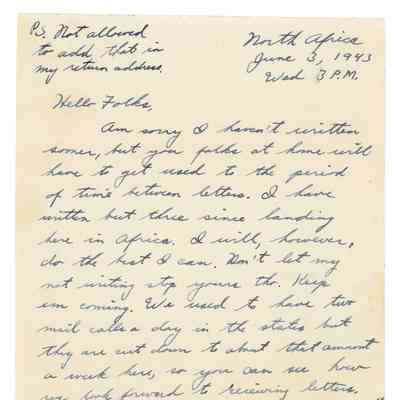 P.S. Not allowed
to add that in
my return address.
North Africa
June 3, 1943
Wed 3 P.M.
Hello Folks,
Am sorry I haven't written
sooner, but you folks at home will
have to get used to the period
of time between letters. I have
written but three since landing
here in Africa. I will, however,
do the best I can. Don't let my
not writing stop yours tho. Keep
em coming. We used to have two
mail calls a day in the states but
they are cut down to about that amount
a week here, so you can see how
we look forward to receiving letters.